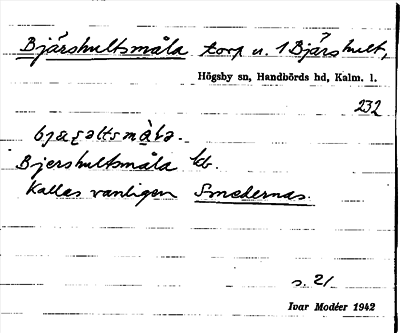 Bjärshultsmåla torp u. 1 Bjärshult,
Högsby sn, Handbörds hd, Kalm. l.
232
Bjershultsmåla kb.
Kallas vanligen Smedernas.
s. 21
Ivar Modéer 1942